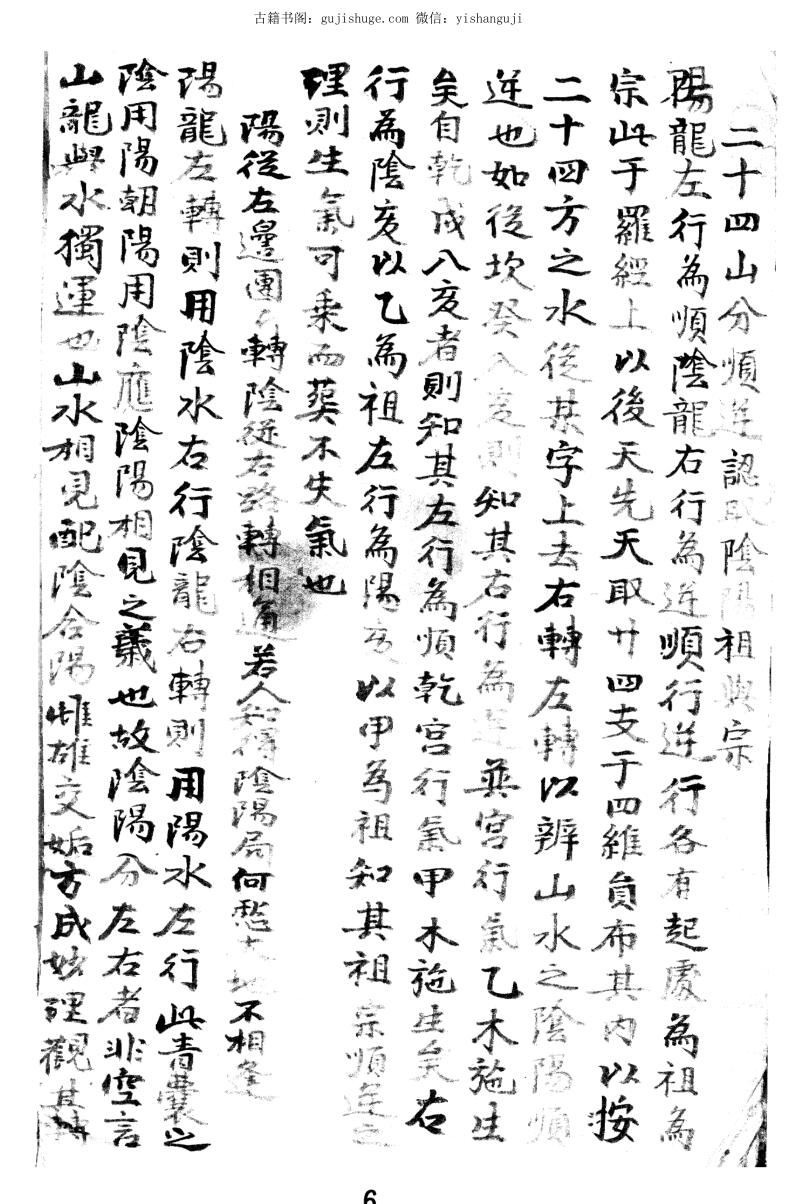 古籍书阁：gujishuge.com 微信：yishanguji
二十四山分順逆認取陰陽祖與宗
陽龍左行為順陰龍右行為逆順行逆行各有起處為祖為
宗此于羅經上以後天先天取廿四支于四維員布其內以按
二十四方之水從某字上去右轉左轉以辨山水之陰陽順
逆也如從坎癸入亥則知其右行為逆 宮行氣乙木施生
矣自乾戌入亥者則知其左行為順乾宮行氣甲木施生矣右
行為陰亥以乙為祖左行為陽亥以甲為祖知其祖宗順逆之
理則生氣可乘而葬不失氣也
陽從左邊團々轉陰從右路轉相通若人知得陰陽局何愁大地不相逢
陽龍左轉則用陰水右行陰龍右轉則用陽水左行此青囊之
陰用陽朝陽用陰應陰陽相見之義也故陰陽分左右者非空言
山龍與水獨運也山水相見配陰合陽雌雄交姤方成妙理觀其轉
6